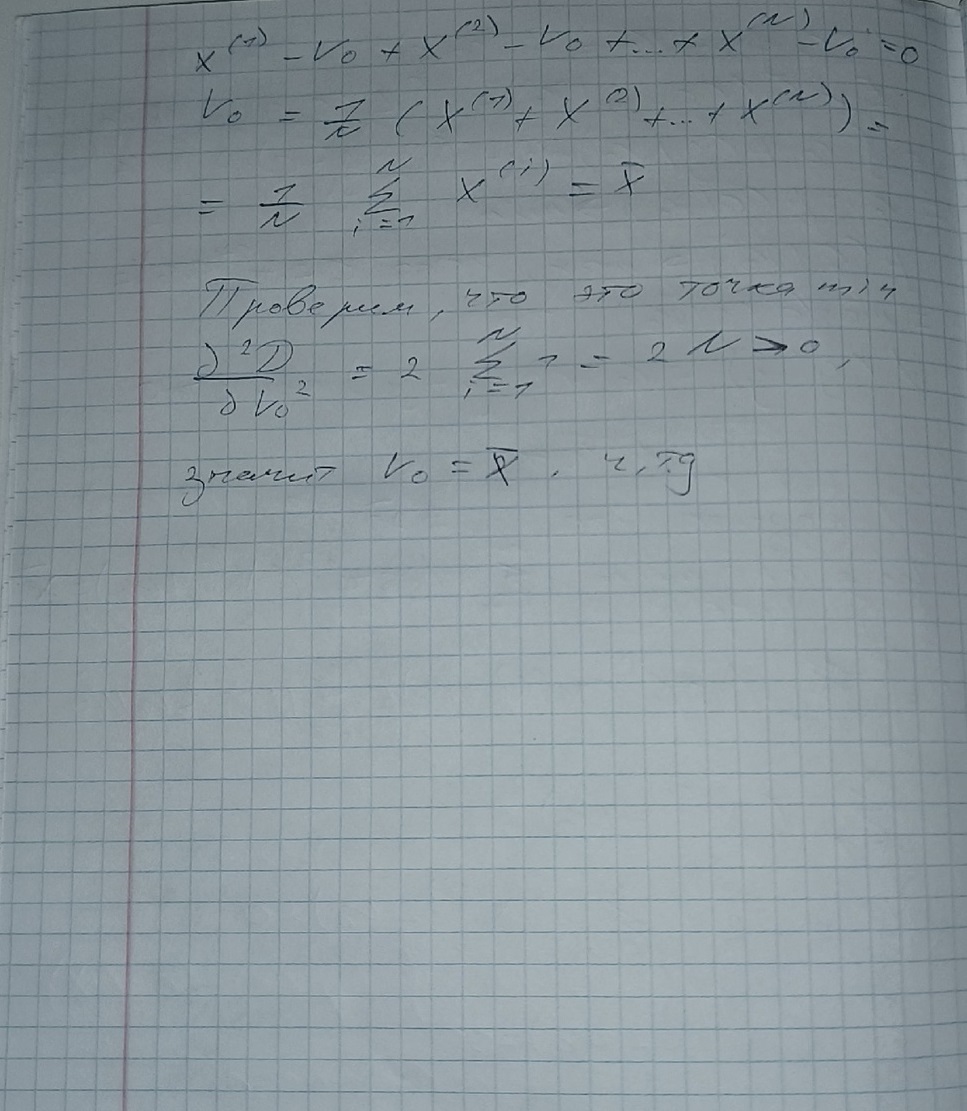 x⁽¹⁾ - V₀ + x⁽²⁾ - V₀ + ... + x⁽ᴺ⁾ - V₀ = 0
V₀ = 1/N (x⁽¹⁾ + x⁽²⁾ + ... + x⁽ᴺ⁾) =
= 1/N ∑ᵢ₌₁ᴺ x⁽ⁱ⁾ = x̄
Проверим, что это точка min
∂²D/∂V₀² = 2 ∑ᵢ₌₁ᴺ 1 = 2N > 0,
значит V₀ = x̄. ч.тд